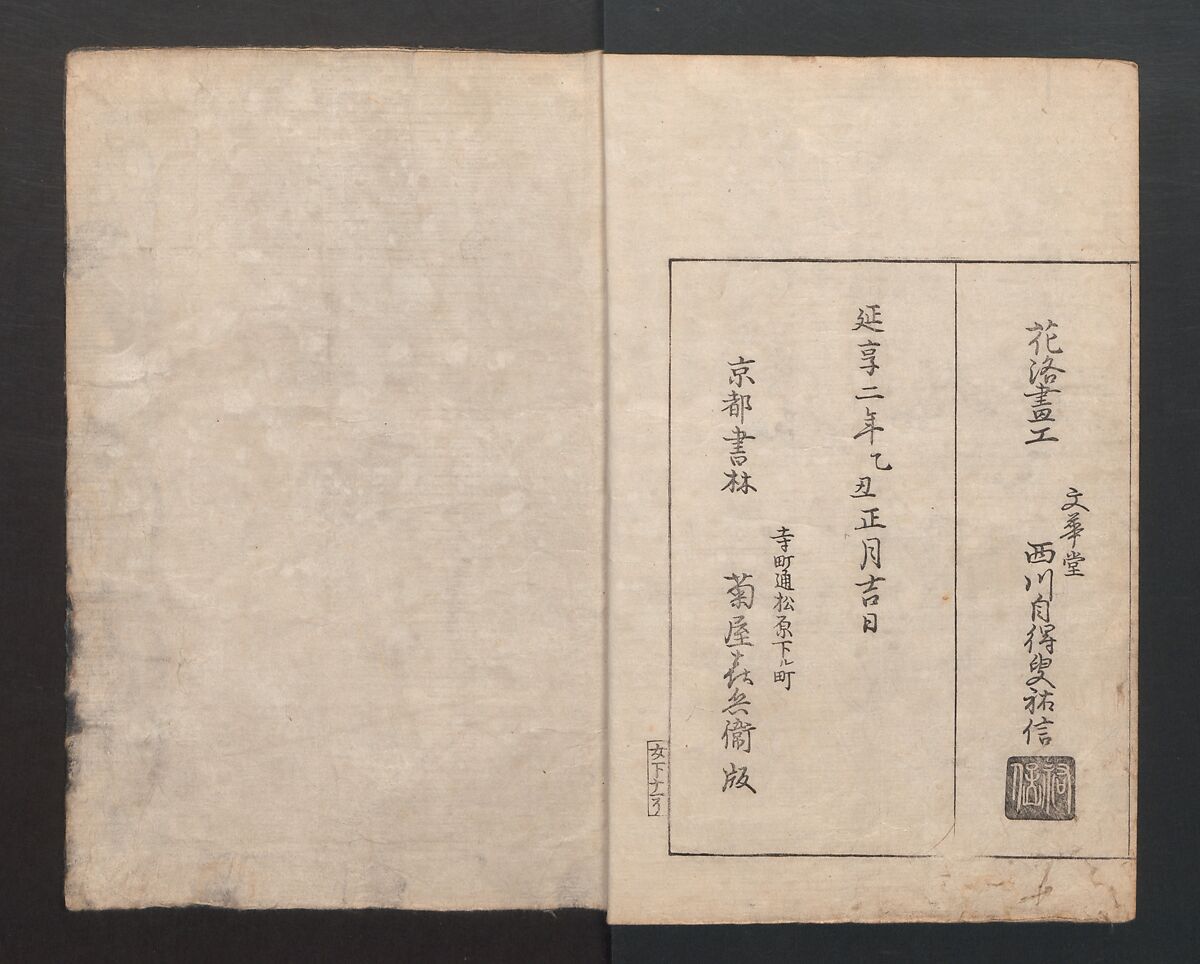 花洛畫工
文華堂
西川自得叟祐信
祐信
延享二年乙丑正月吉日
京都書林
寺町通松原下ル町
菊屋㐂兵衛版
女下十一